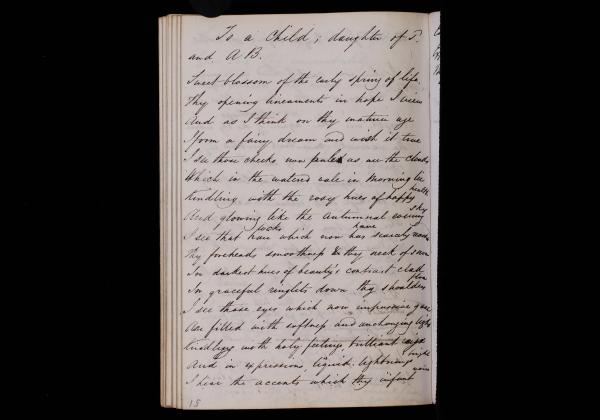 To a Child; daughter of T.
and A. B.
Sweet blossom of the early spring of life
Thy opening lineaments in hope I view
And as I think on thy mature age
I form a fairy dream and wish it true
I see those cheeks now pale as are the clouds
Which in the watered vale in morning lie
Kindling with the rosy hues of happy health
And glowing like the autumnal evening sky
I see that hair locks which now has have scarcely
Thy foreheads smoothness & thy neck of snow
In darkest hues of beauty's contrast clad
In graceful ringlets down thy shoulders flow
I see those eyes which now impressive gaze
Are filled with softness and unchanging light
Kindling with holy feelings brilliant
And in expressions, liquid lightnings bright
I hear the accents which thy infant voice
18